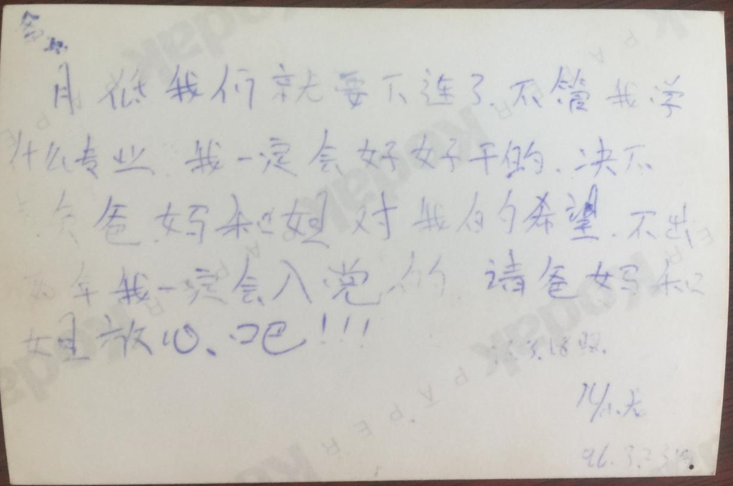 月低我们就要下连了.不管我学
什么专业.我一定会好好干的.决不
负爸妈和姐对我的希望.不出
两年我一定会入党的.请爸妈和
姐放心吧!!!
3.18照.
96.3.23